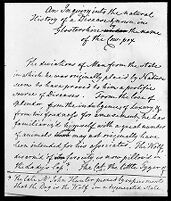 An Inquiry into the natural
History of a Disease known in
Glostershire by the name
of the Cow-pox.
The deviations of Man from the state
in which he was originally placed by Nature
seem to have proved to him a prolific
source of Diseases. From the love of
splendor from the indulgence of luxury &
from his fondness for amusement, he has
familiarised himself with a great number
of animals which may not originally have
been intended for his associates. The Wolf
disarmed of its ferocity is now pillow'd in
the lady's lap. The Cat, the little Tyger